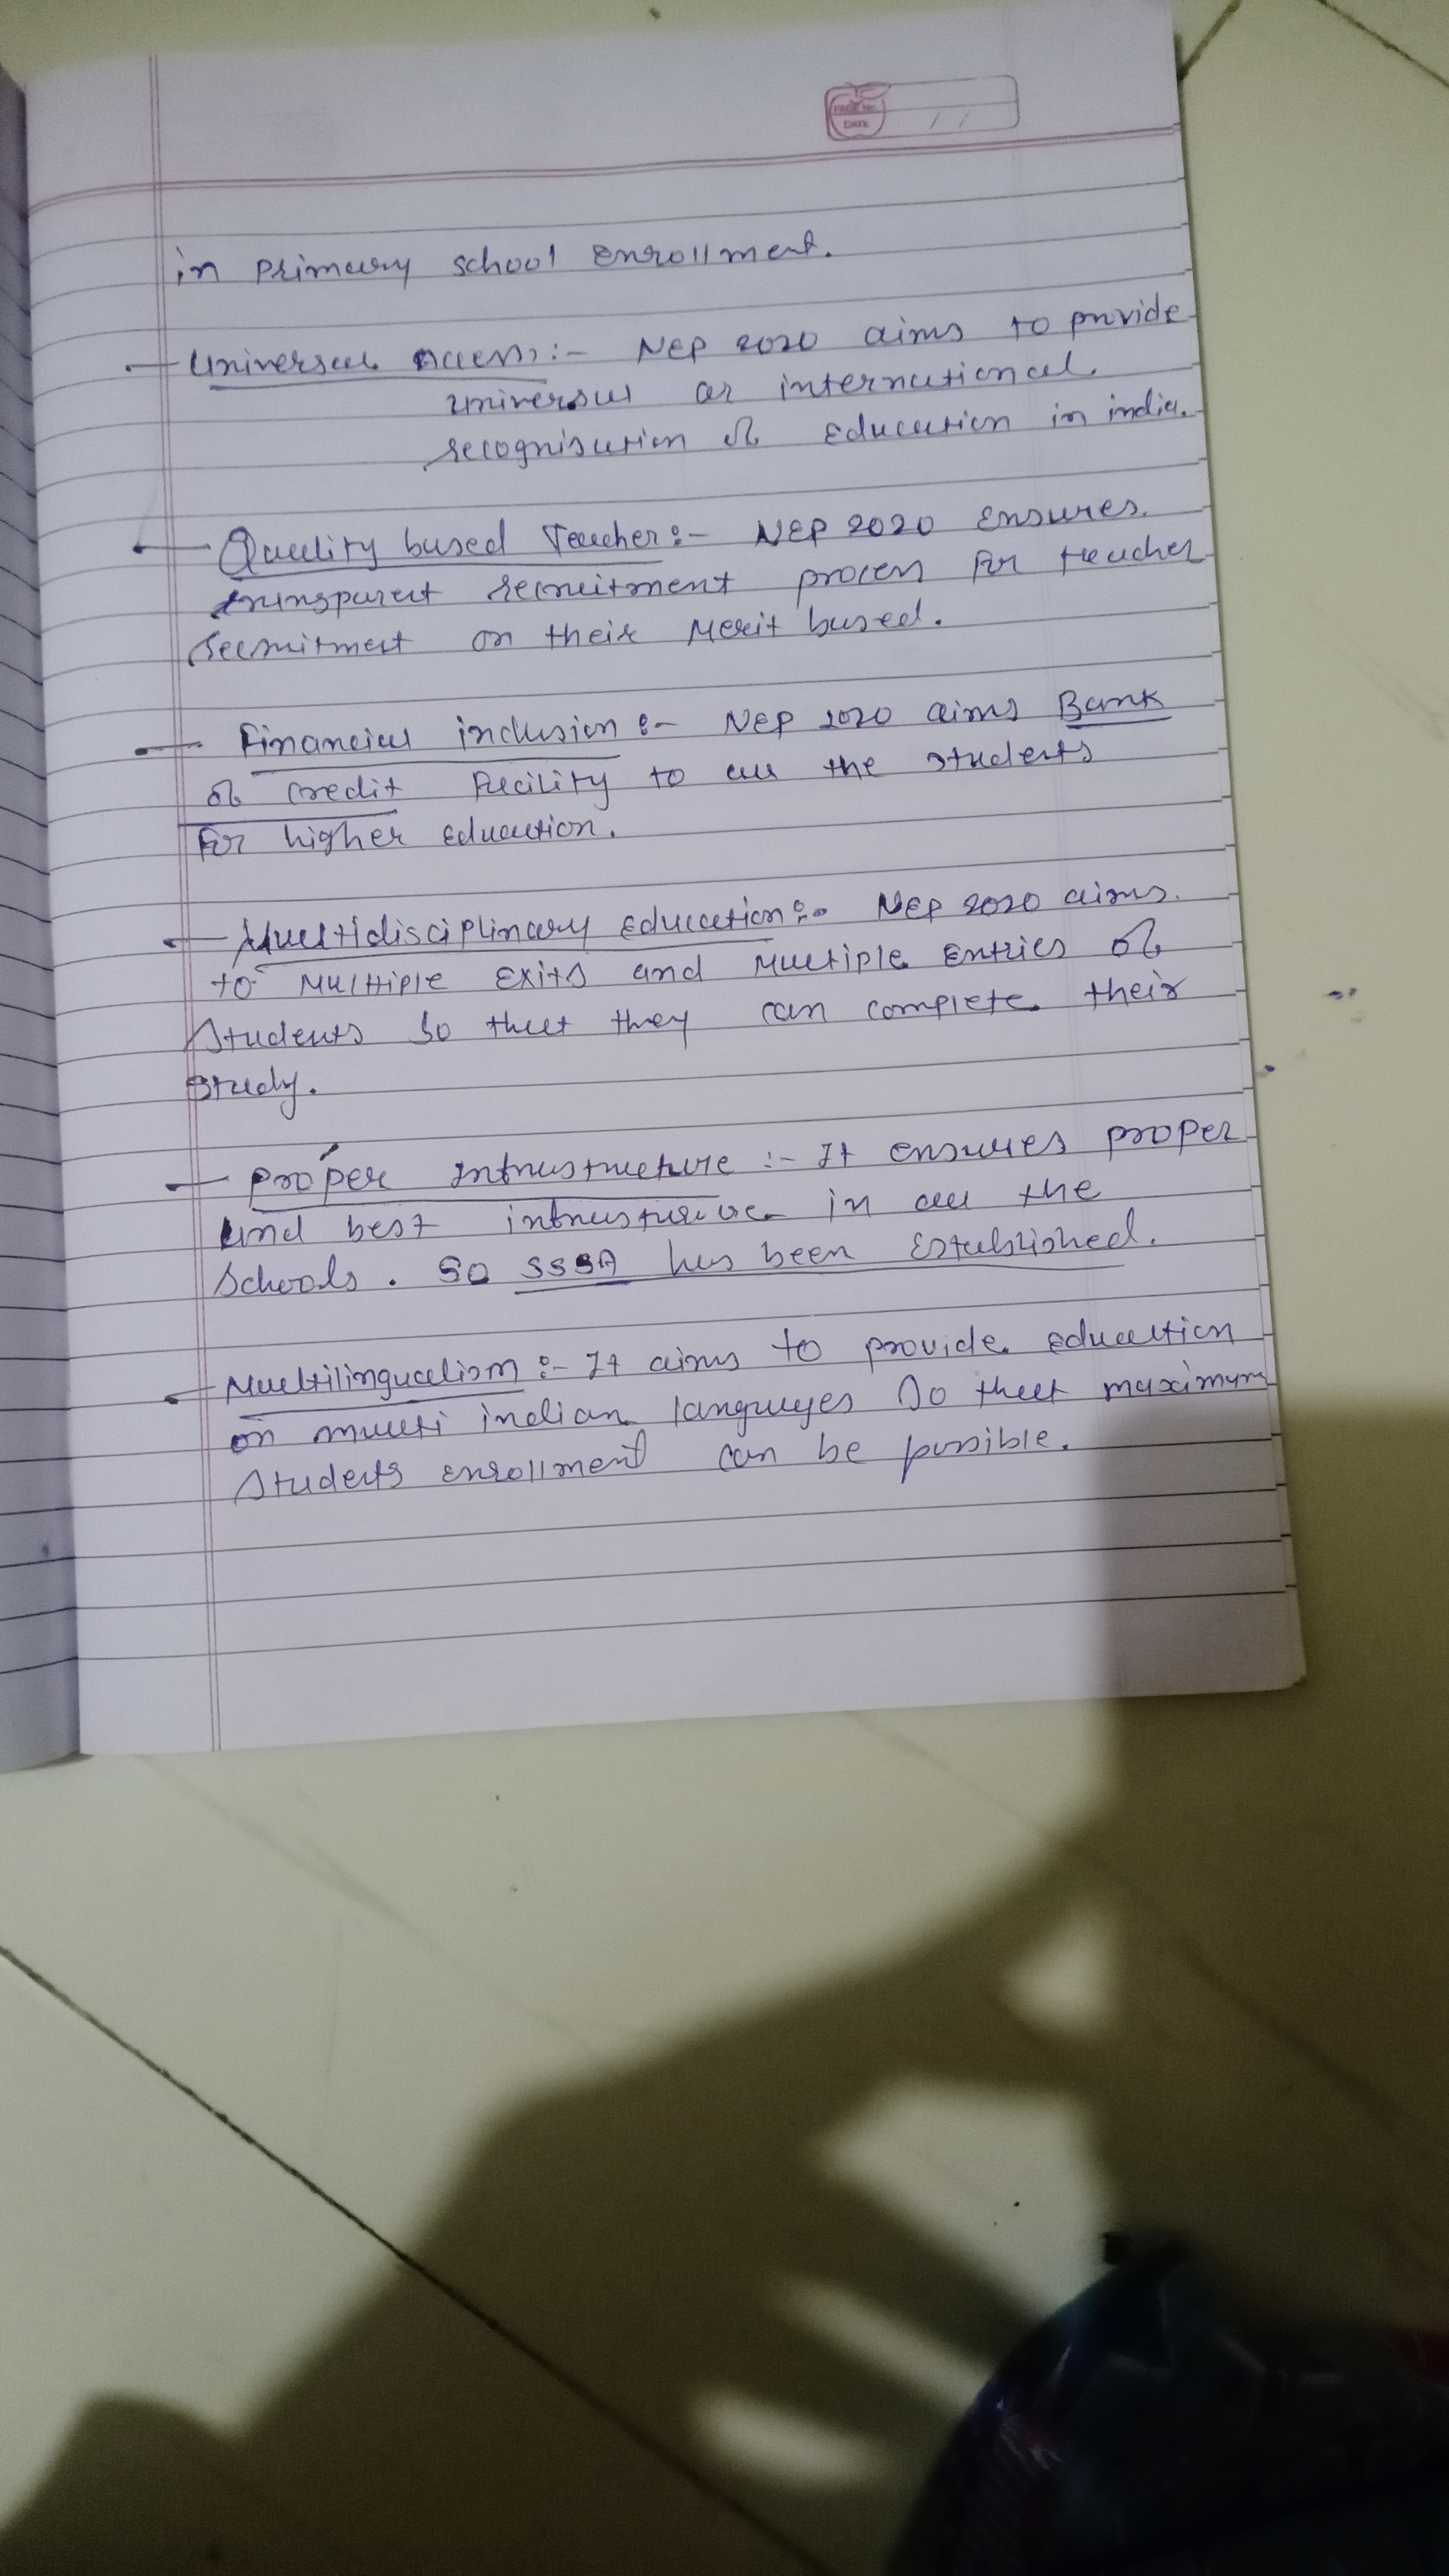 PAGE No.
DATE / /
in primary school enrollment.
Universal Access:- NEP 2020 aims to provide
universal or international
recognisation of education in india.
Quality based Teacher:- NEP 2020 ensures
transparent recruitment process for teacher
recruitment on their merit based.
Financial inclusion:- NEP 2020 aims Bank
of credit facility to all the students
for higher education.
Multidisciplinary education:- NEP 2020 aims
to multiple exits and multiple entries of
students so that they can complete their
study.
proper :- It ensures proper
and best in all the
schools. So SSSA has been established.
Multilingualism:- It aims to provide education
on multi indian languages so that maximum
students enrollment can be possible.